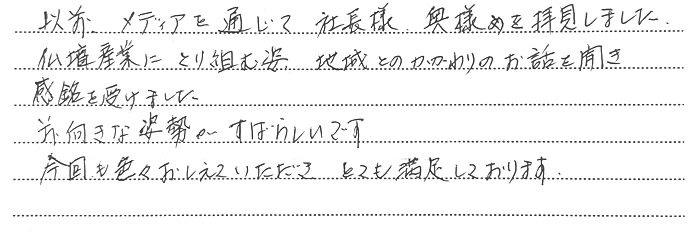 以前、メディアを通じて 社長様 奥様めを拝見しました.
仏壇産業にとり組む姿 地域とのかかわりのお話を聞き
感銘を受けました
前向きな姿勢が すばらしいです
今回も色々おしえていただき とても満足しております.